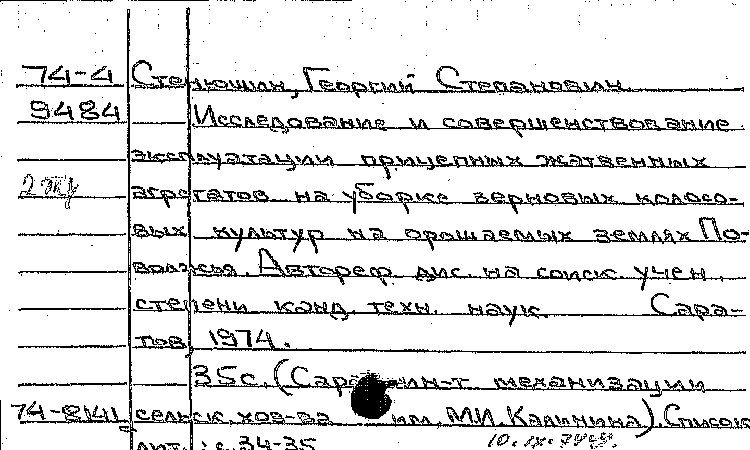 74-4 Стенюшин, Георгий Степанович.
9484 Исследование и совершенствование
эксплуатации прицепных жатвенных
агрегатов на уборке зерновых колосо-
вых культур на орошаемых землях По-
волжья. Автореф. дис. на соиск. учен.
степени канд. техн. наук. Сара-
тов, 1974.
35с. (Сарат. ин-т механизации
74-8141 сельск. хоз-ва им. М.И. Калинина). Список
лит.: с. 34-35